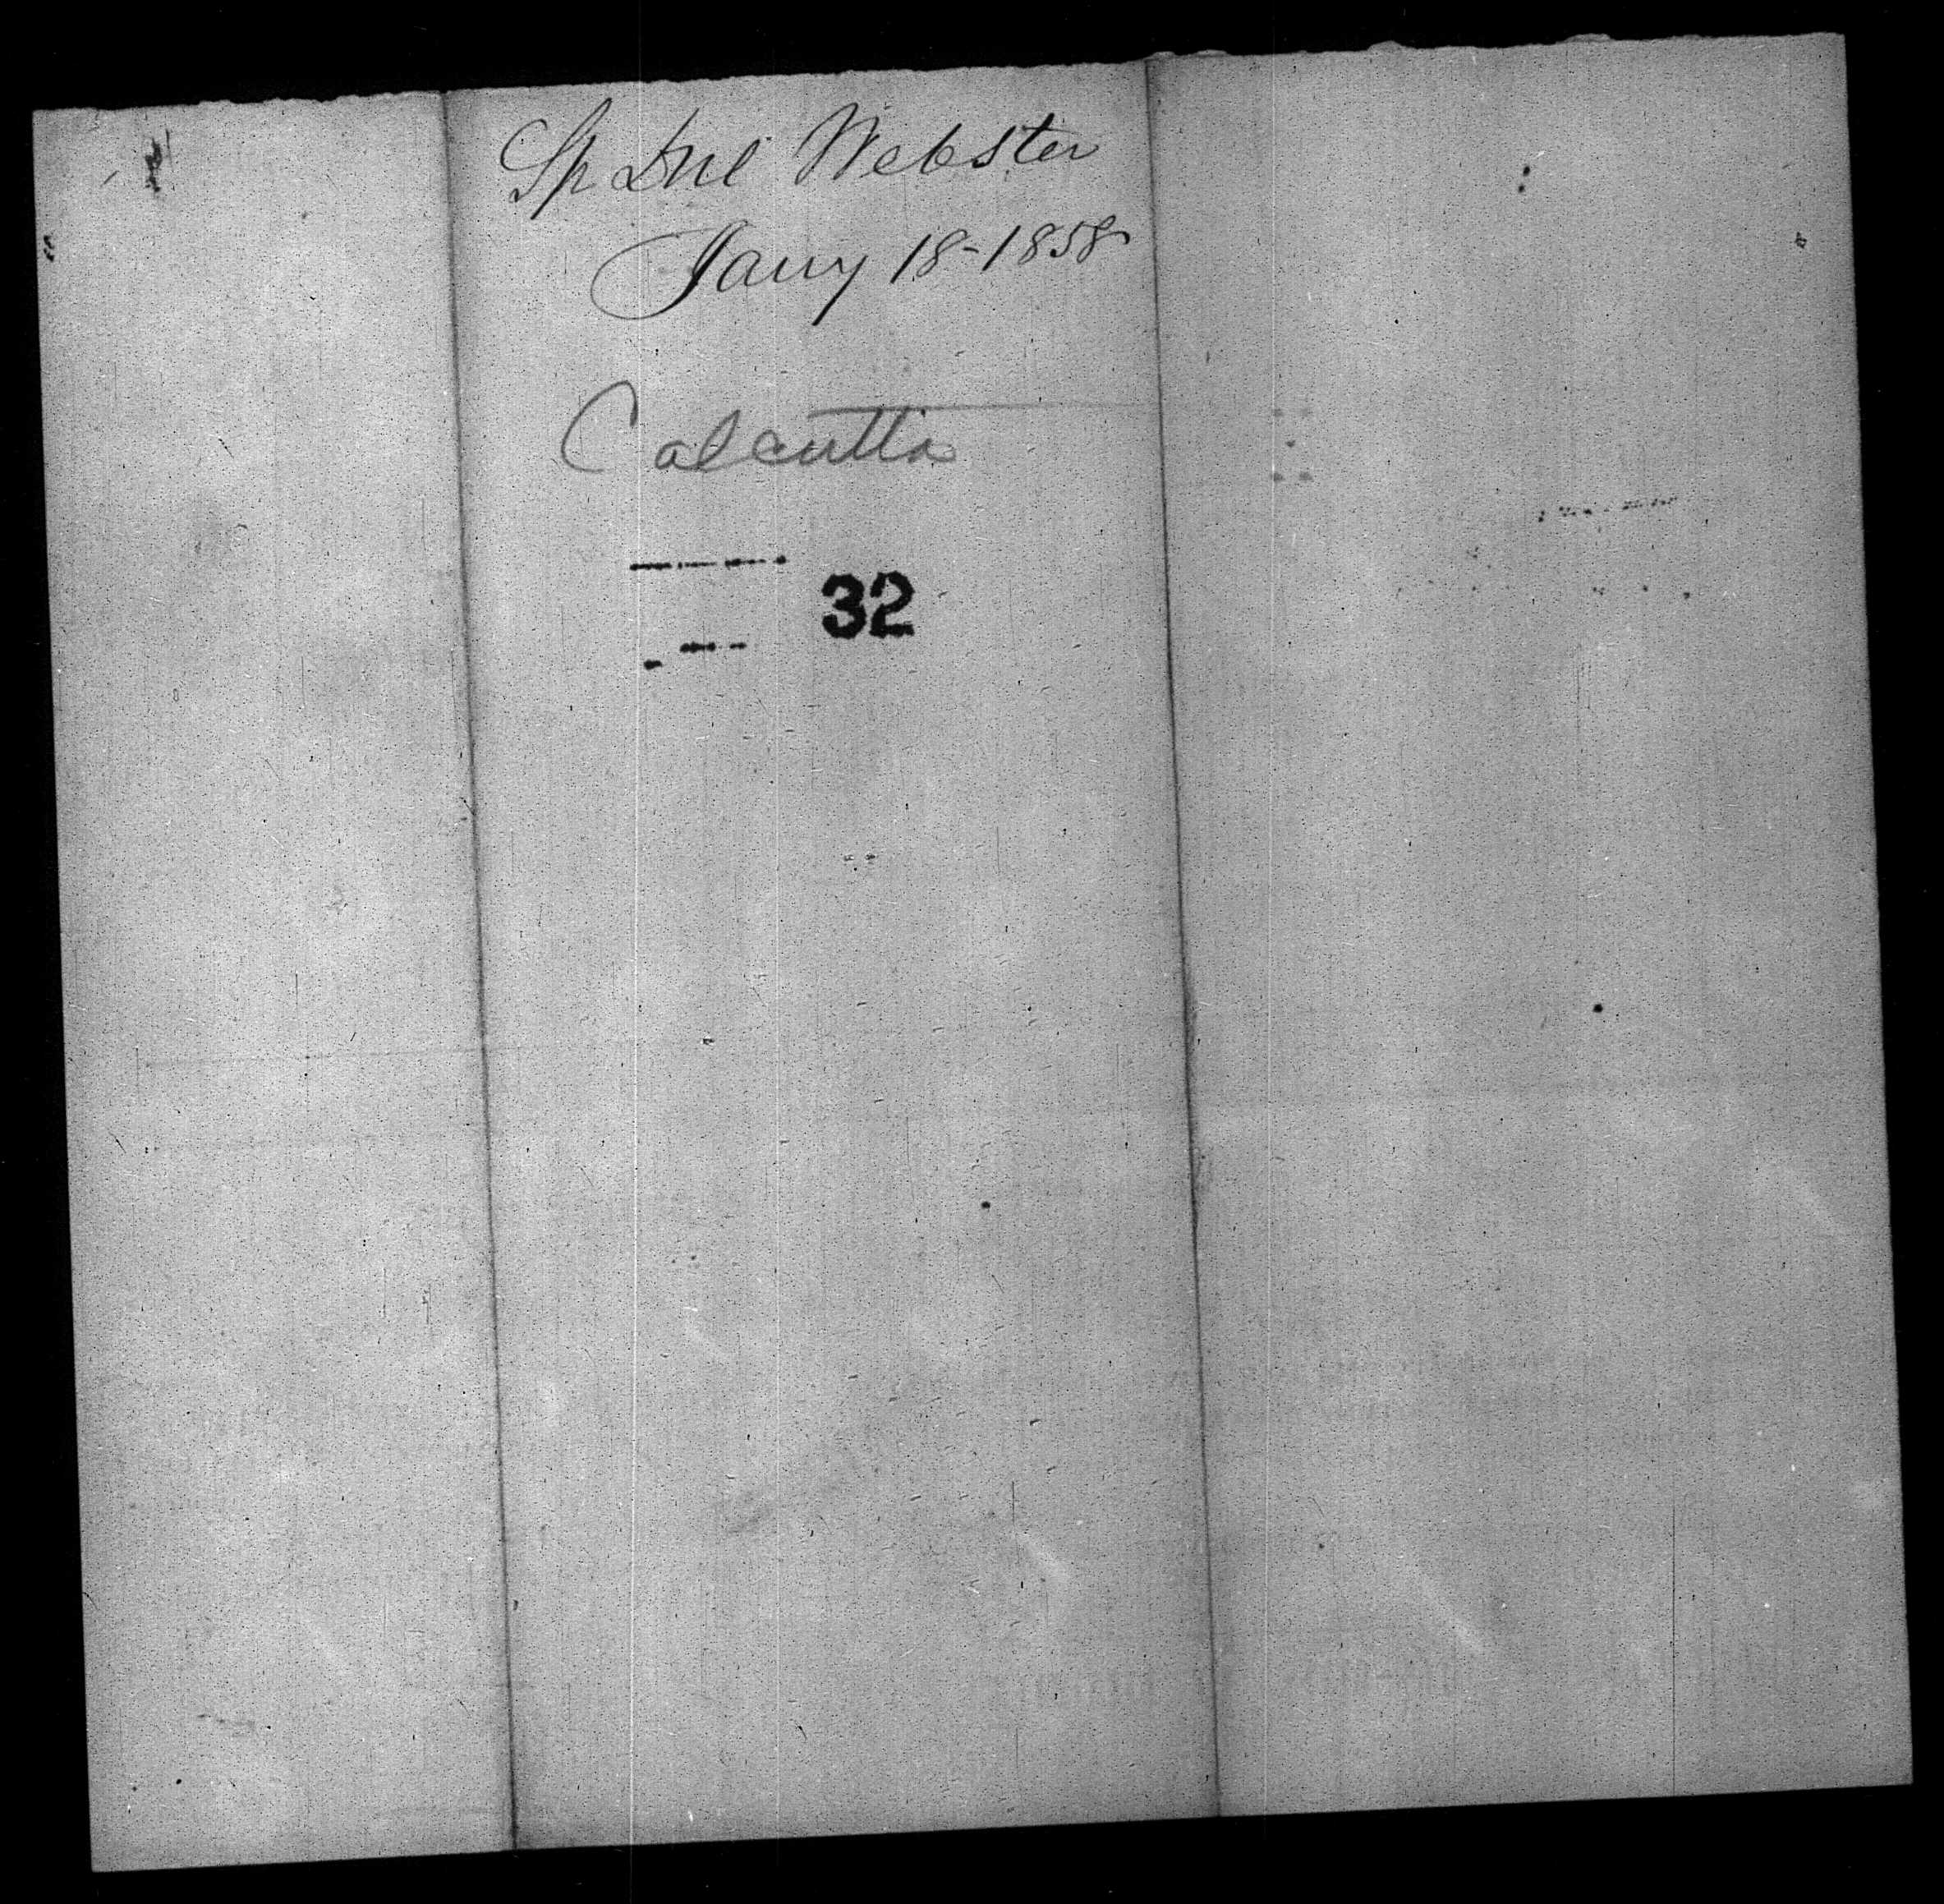 Sh Dnl Webster
Jany 18-1858
Calcutta
32